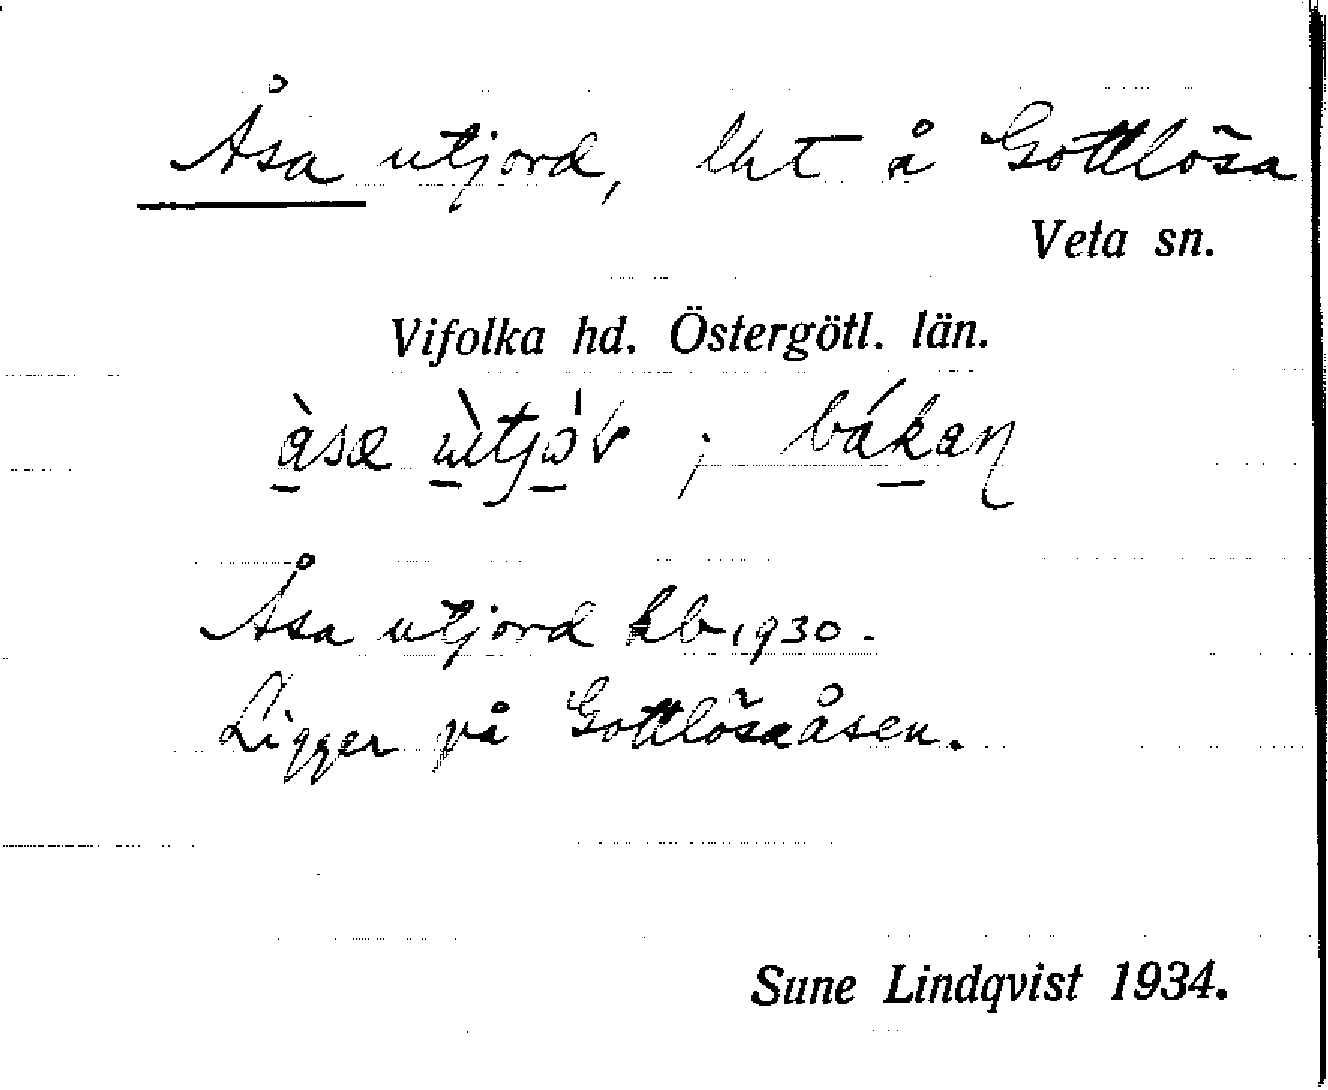 Åsa utjord, lht å Gottlösa
Veta sn.
Vifolka hd. Östergötl. län.
Åsa utjord kb 1930.
Ligger på Gottlösaåsen.
Sune Lindqvist 1934.